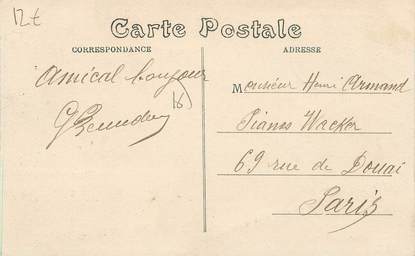 12€
Carte Postale
CORRESPONDANCE
ADRESSE
Amical bonjour
16)
Monsieur Henri Armand
Pianos Wacker
69 rue de Douai
Paris